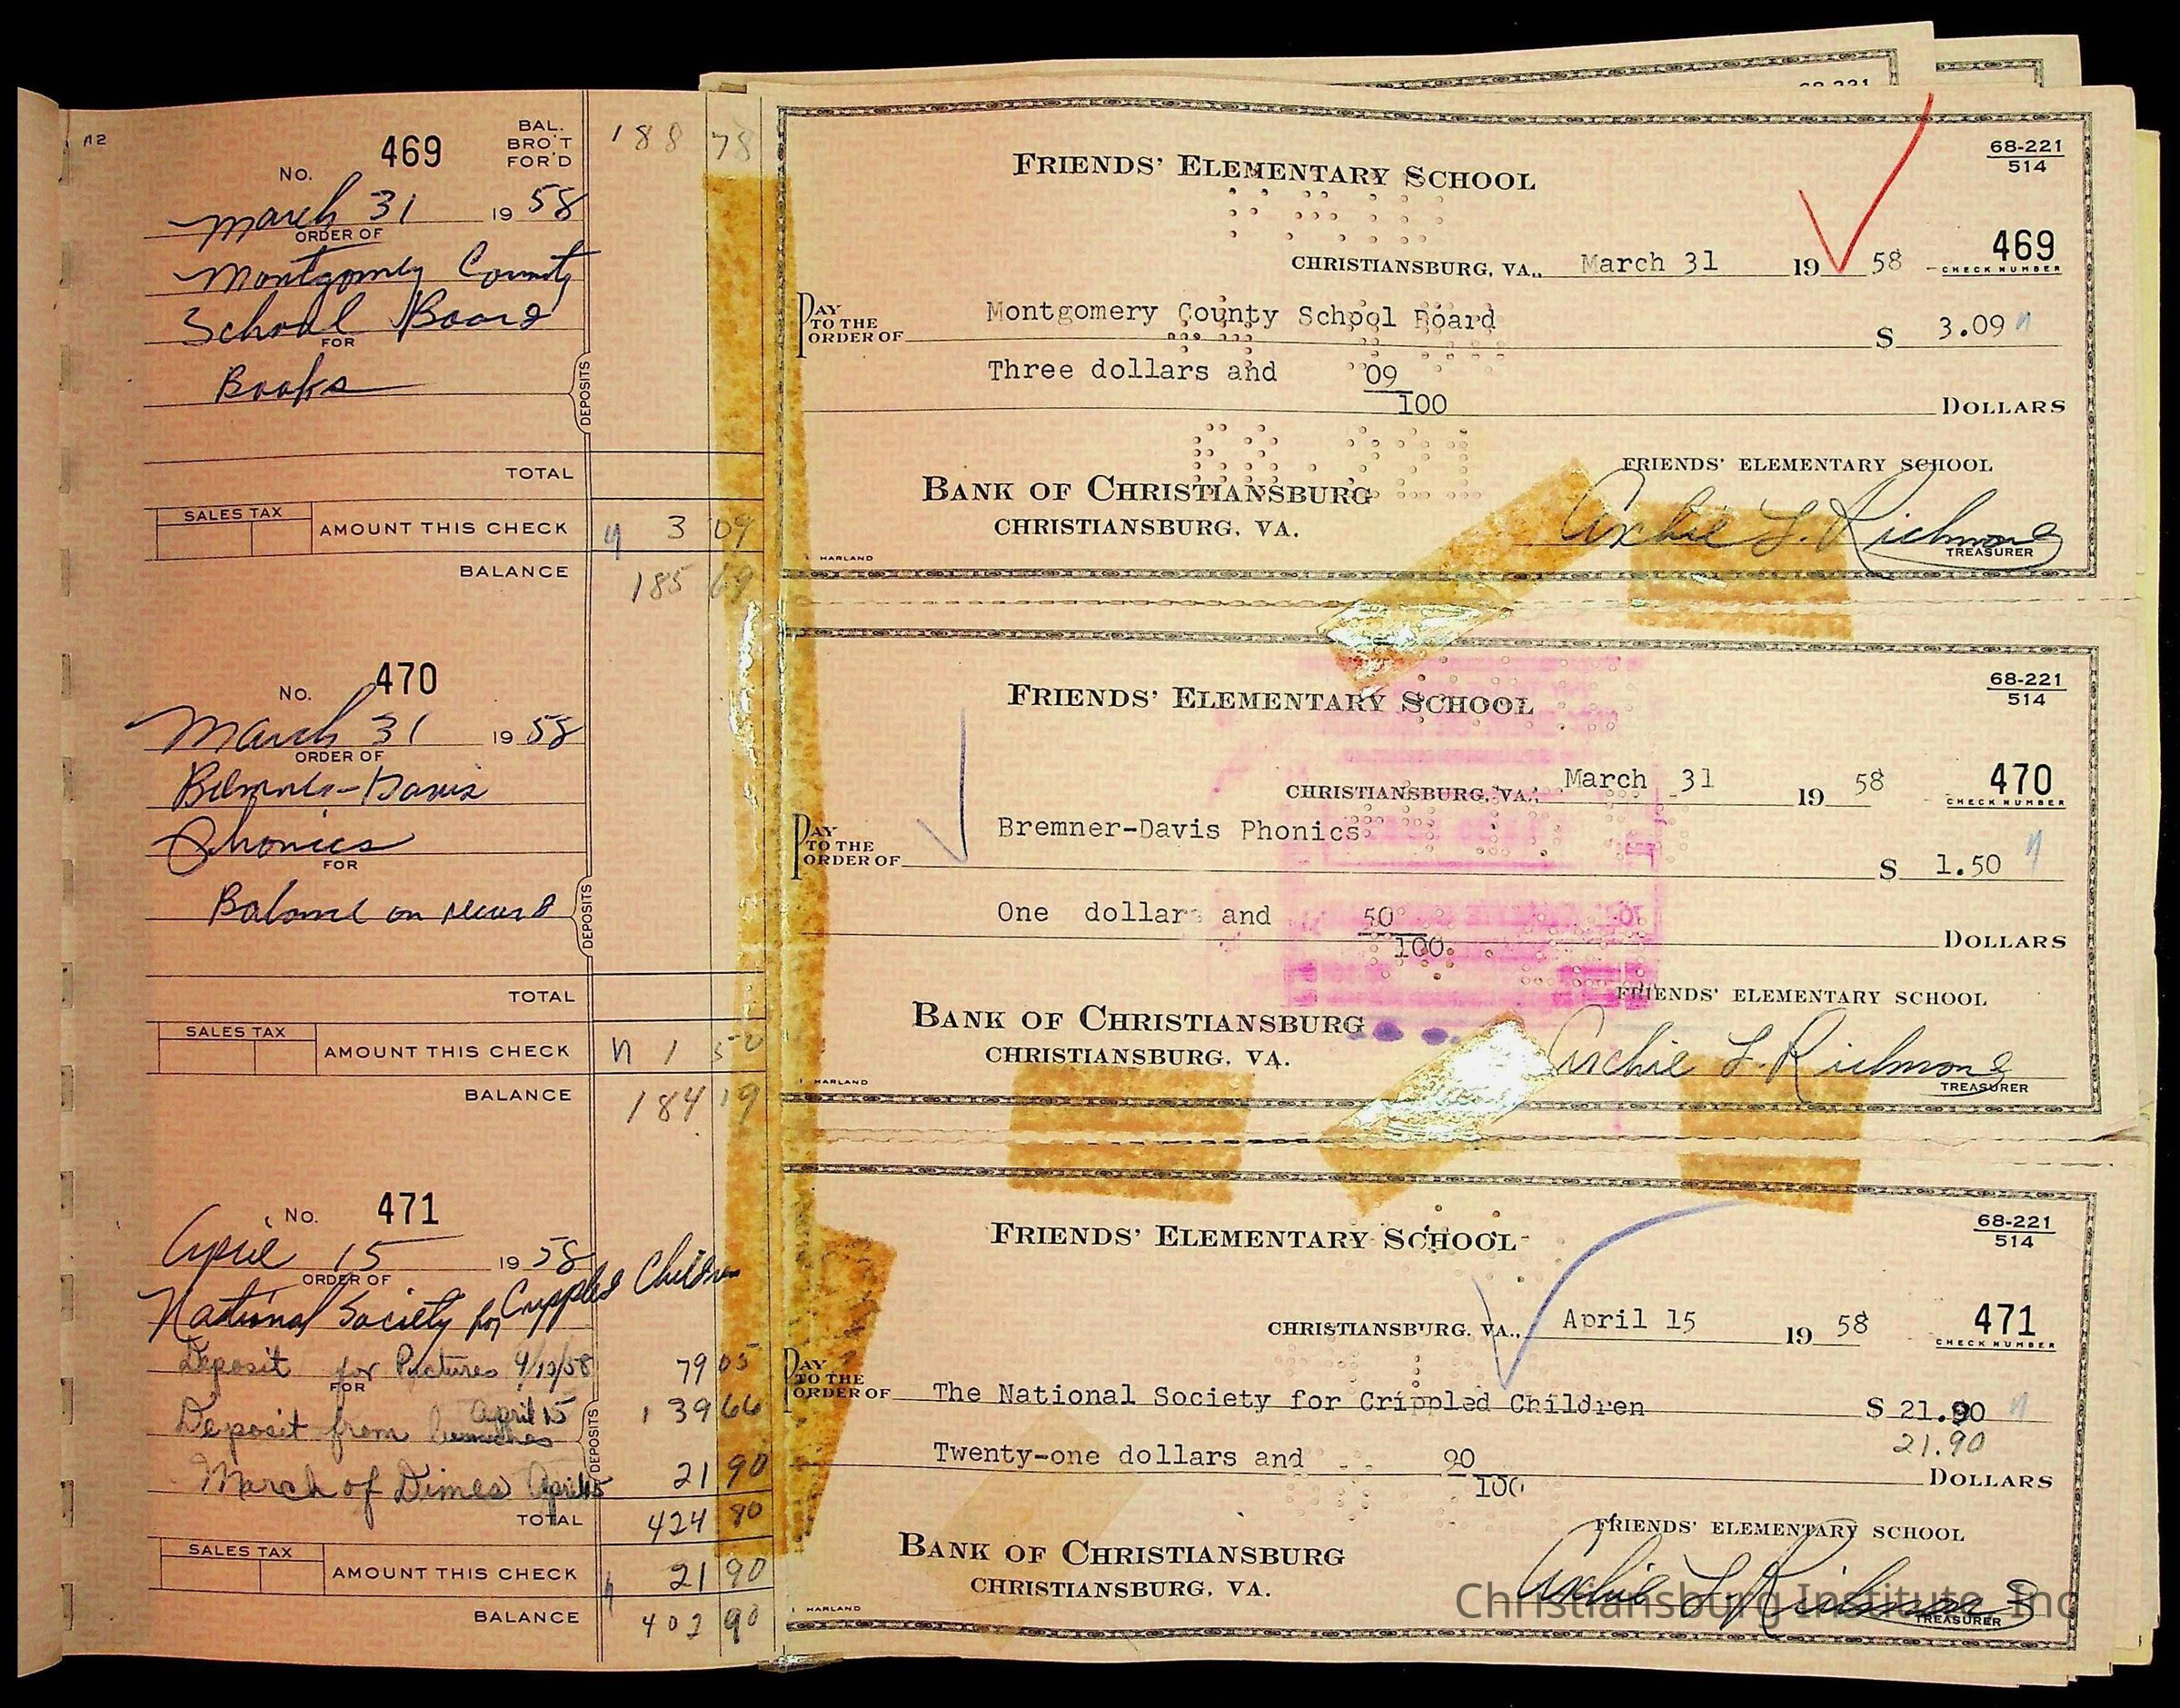 No. 469
BAL. BRO'T FOR'D 188 78
March 31 19 58
ORDER OF
Montgomery County
School Board
FOR
Books
DEPOSITS
TOTAL
SALES TAX
AMOUNT THIS CHECK 3 09
BALANCE 185 69
No. 470
March 31 19 58
ORDER OF
Phonics
FOR
Balance on record
DEPOSITS
TOTAL
SALES TAX
AMOUNT THIS CHECK 1 50
BALANCE 184 19
No. 471
April 15 19 58
ORDER OF
National Society for Crippled Children
Deposit for Pictures 79 05
FOR
April 15
Deposit from 139 66
DEPOSITS
March of Dimes April 15 21 90
TOTAL 424 80
SALES TAX
AMOUNT THIS CHECK 21 90
BALANCE 402 90
FRIENDS' ELEMENTARY SCHOOL
68-221
514
CHRISTIANSBURG, VA., March 31 19 58
469
CHECK NUMBER
PAY TO THE ORDER OF Montgomery County School Board $ 3.09
Three dollars and 09
100 DOLLARS
FRIENDS' ELEMENTARY SCHOOL
BANK OF CHRISTIANSBURG
CHRISTIANSBURG, VA.
Archie L. Richmond
TREASURER
HARLAND
FRIENDS' ELEMENTARY SCHOOL
68-221
514
CHRISTIANSBURG, VA., March 31 19 58
470
CHECK NUMBER
PAY TO THE ORDER OF Bremner-Davis Phonics $ 1.50
One dollar and 50
100 DOLLARS
FRIENDS' ELEMENTARY SCHOOL
BANK OF CHRISTIANSBURG
CHRISTIANSBURG, VA.
Archie L. Richmond
TREASURER
HARLAND
FRIENDS' ELEMENTARY SCHOOL
68-221
514
CHRISTIANSBURG, VA., April 15 19 58
471
CHECK NUMBER
PAY TO THE ORDER OF The National Society for Crippled Children $ 21.90
21.90
Twenty-one dollars and 90
100 DOLLARS
FRIENDS' ELEMENTARY SCHOOL
BANK OF CHRISTIANSBURG
CHRISTIANSBURG, VA.
Archie L Richmond
TREASURER
HARLAND
Christiansburg Institute, Inc